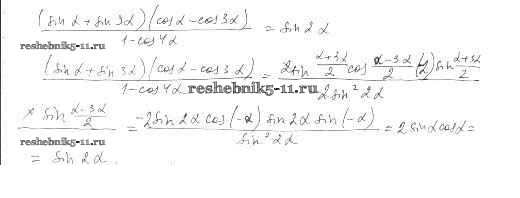 (sin α + sin 3α)(cos α - cos 3α) / 1 - cos 4α = sin 2α
reshebnik5-11.ru
(sin α + sin 3α)(cos α - cos 3α) / 1 - cos 4α = 2 sin (α + 3α)/2 cos (α - 3α)/2 (-2) sin (α + 3α)/2 / 2 sin² 2α
reshebnik5-11.ru
× sin (α - 3α)/2 = -2 sin 2α cos (-α) sin 2α sin (-α) / sin² 2α = 2 sin α cos α =
reshebnik5-11.ru
= sin 2α.